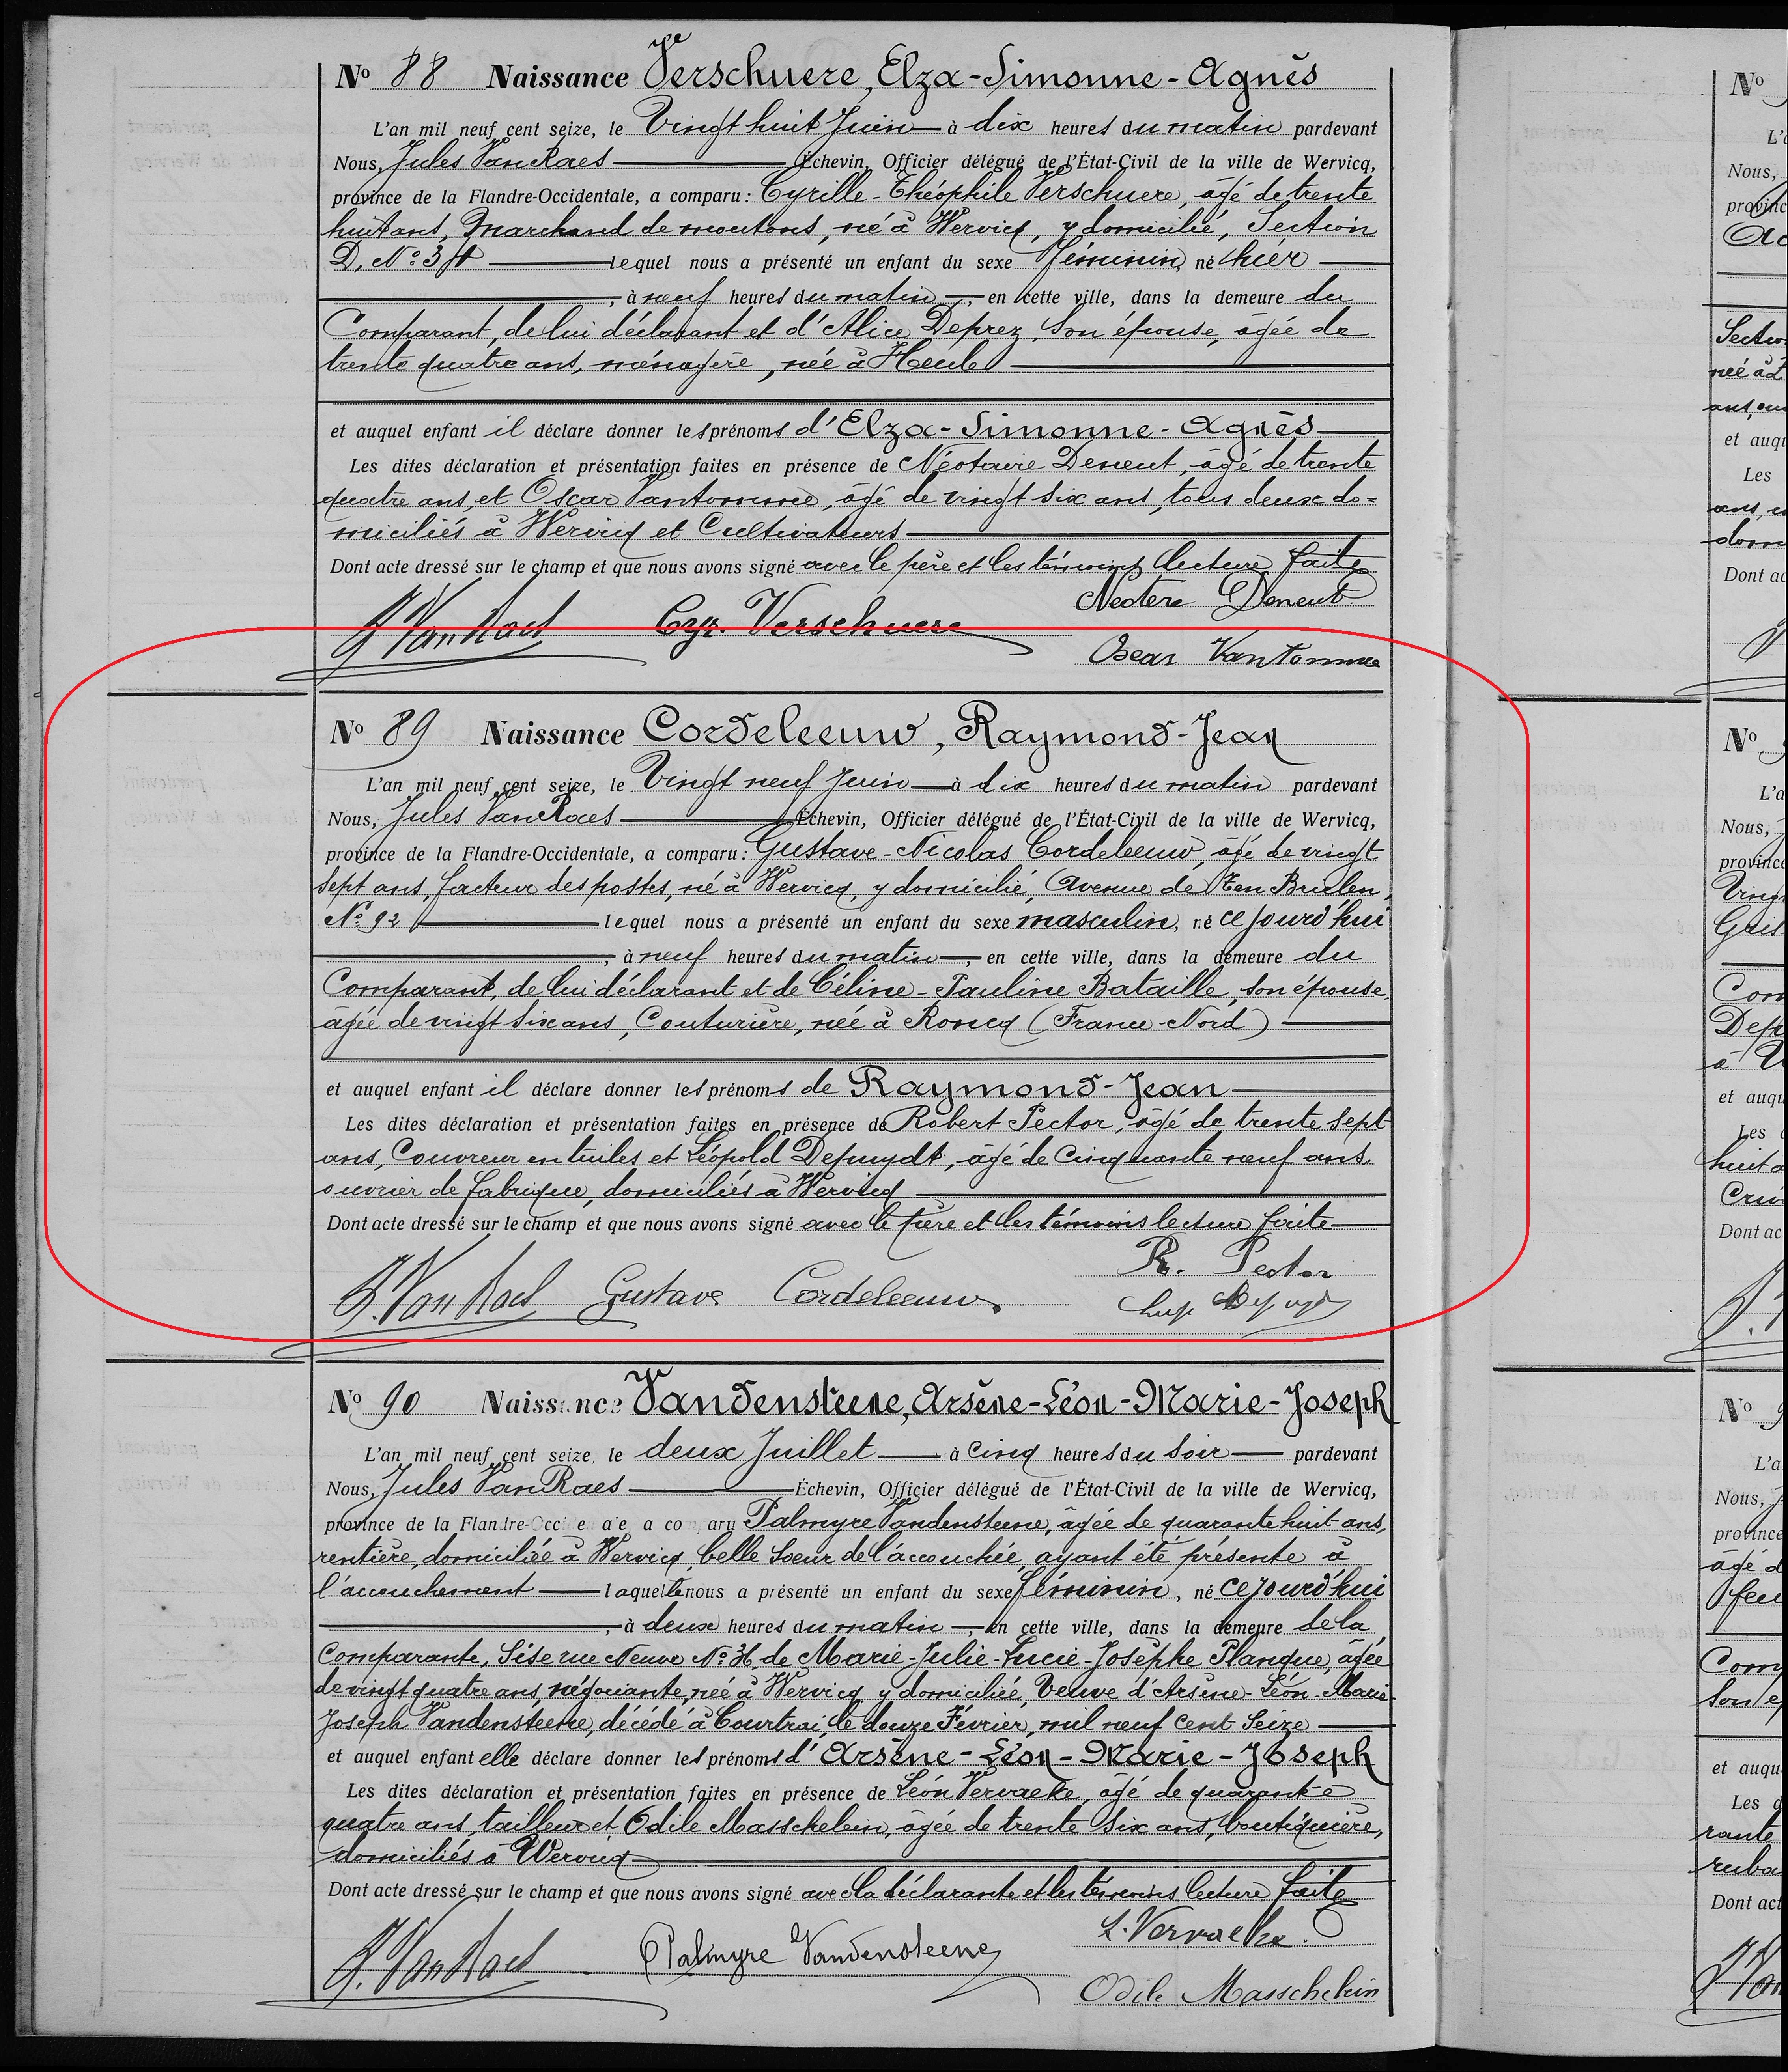 No 88 Naissance Verschuere, Elza-Simonne-Agnès
L'an mil neuf cent seize, le Vingt huit Juin à dix heures du matin pardevant
Nous, Jules Van Raes Échevin, Officier délégué de l'État-Civil de la ville de Wervicq,
province de la Flandre-Occidentale, a comparu: Cyrille-Théophile Verschuere, âgé de trente
huit ans, Marchand de moutons, né à Wervicq, y domicilié, Section
D, No lequel nous a présenté un enfant du sexe féminin, né hier
, à neuf heures du matin, en cette ville, dans la demeure du
Comparant, de lui déclarant et d'Alice Deprez, son épouse, âgée de
trente quatre ans, ménagère, née à Heule
et auquel enfant il déclare donner les prénoms d'Elza-Simonne-Agnès
Les dites déclaration et présentation faites en présence de Deneut, âgé de trente
quatre ans, et Oscar Vantomme, âgé de vingt six ans, tous deux do=
miciliés à Wervicq et Cultivateurs
Dont acte dressé sur le champ et que nous avons signé avec le père et les témoins lecture faite
J. Van Raes Cyr. Verschuere Deneut
Oscar Vantomme
No 89 Naissance Cordeleeuw, Raymond-Jean
L'an mil neuf cent seize, le Vingt neuf Juin à dix heures du matin pardevant
Nous, Jules Van Raes Échevin, Officier délégué de l'État-Civil de la ville de Wervicq,
province de la Flandre-Occidentale, a comparu: Gustave-Nicolas Cordeleeuw, âgé de vingt
sept ans, facteur des postes, né à Wervicq, y domicilié, Avenue de Ten Brielen,
No 92 lequel nous a présenté un enfant du sexe masculin, né ce jourd'hui
, à neuf heures du matin, en cette ville, dans la demeure du
Comparant, de lui déclarant et de Céline-Pauline Bataille, son épouse,
agée de vingt six ans, Couturière, née à Roncq (France-Nord)
et auquel enfant il déclare donner les prénoms de Raymond-Jean
Les dites déclaration et présentation faites en présence de Robert Pector, âgé de trente sept
ans, Couvreur en tuiles et Léopold Depuydt, âgé de Cinquante neuf ans,
ouvrier de fabrique, domiciliés à Wervicq
Dont acte dressé sur le champ et que nous avons signé avec le père et les témoins lecture faite
R. Pector
J. Van Raes Gustave Cordeleeuw
No 90 Naissance Vandensteene, Arsène-Léon-Marie-Joseph
L'an mil neuf cent seize, le deux Juillet à cinq heures du soir pardevant
Nous, Jules Van Raes Échevin, Officier délégué de l'État-Civil de la ville de Wervicq,
province de la Flandre-Occidentale, a comparu Palmyre Vandensteene, âgée de quarante huit ans,
rentière, domiciliée à Wervicq, belle soeur de l'accouchée, ayant été présente à
l'accouchement laquelle nous a présenté un enfant du sexe féminin, né ce jourd'hui
, à deux heures du matin, en cette ville, dans la demeure de la
Comparante, Sise rue Neuve No 36, de Marie-Julie-Lucie-Josèphe Planque, âgée
de vingt quatre ans, négociante, née à Wervicq y domiciliée, Veuve d'Arsène-Léon-Marie-
Joseph Vandensteene, décédé à Courtrai, le douze Février, mil neuf Cent Seize
et auquel enfant elle déclare donner les prénoms d'Arsène-Léon-Marie-Joseph
Les dites déclaration et présentation faites en présence de Léon Vervaeke, âgé de quarante
quatre ans, tailleur et Odile Masschelein, âgée de trente six ans, boutiquière,
domiciliés à Wervicq
Dont acte dressé sur le champ et que nous avons signé avec la déclarante et les témoins lecture faite
L. Vervaeke
J. Van Raes Palmyre Vandensteene
Odile Masschelein